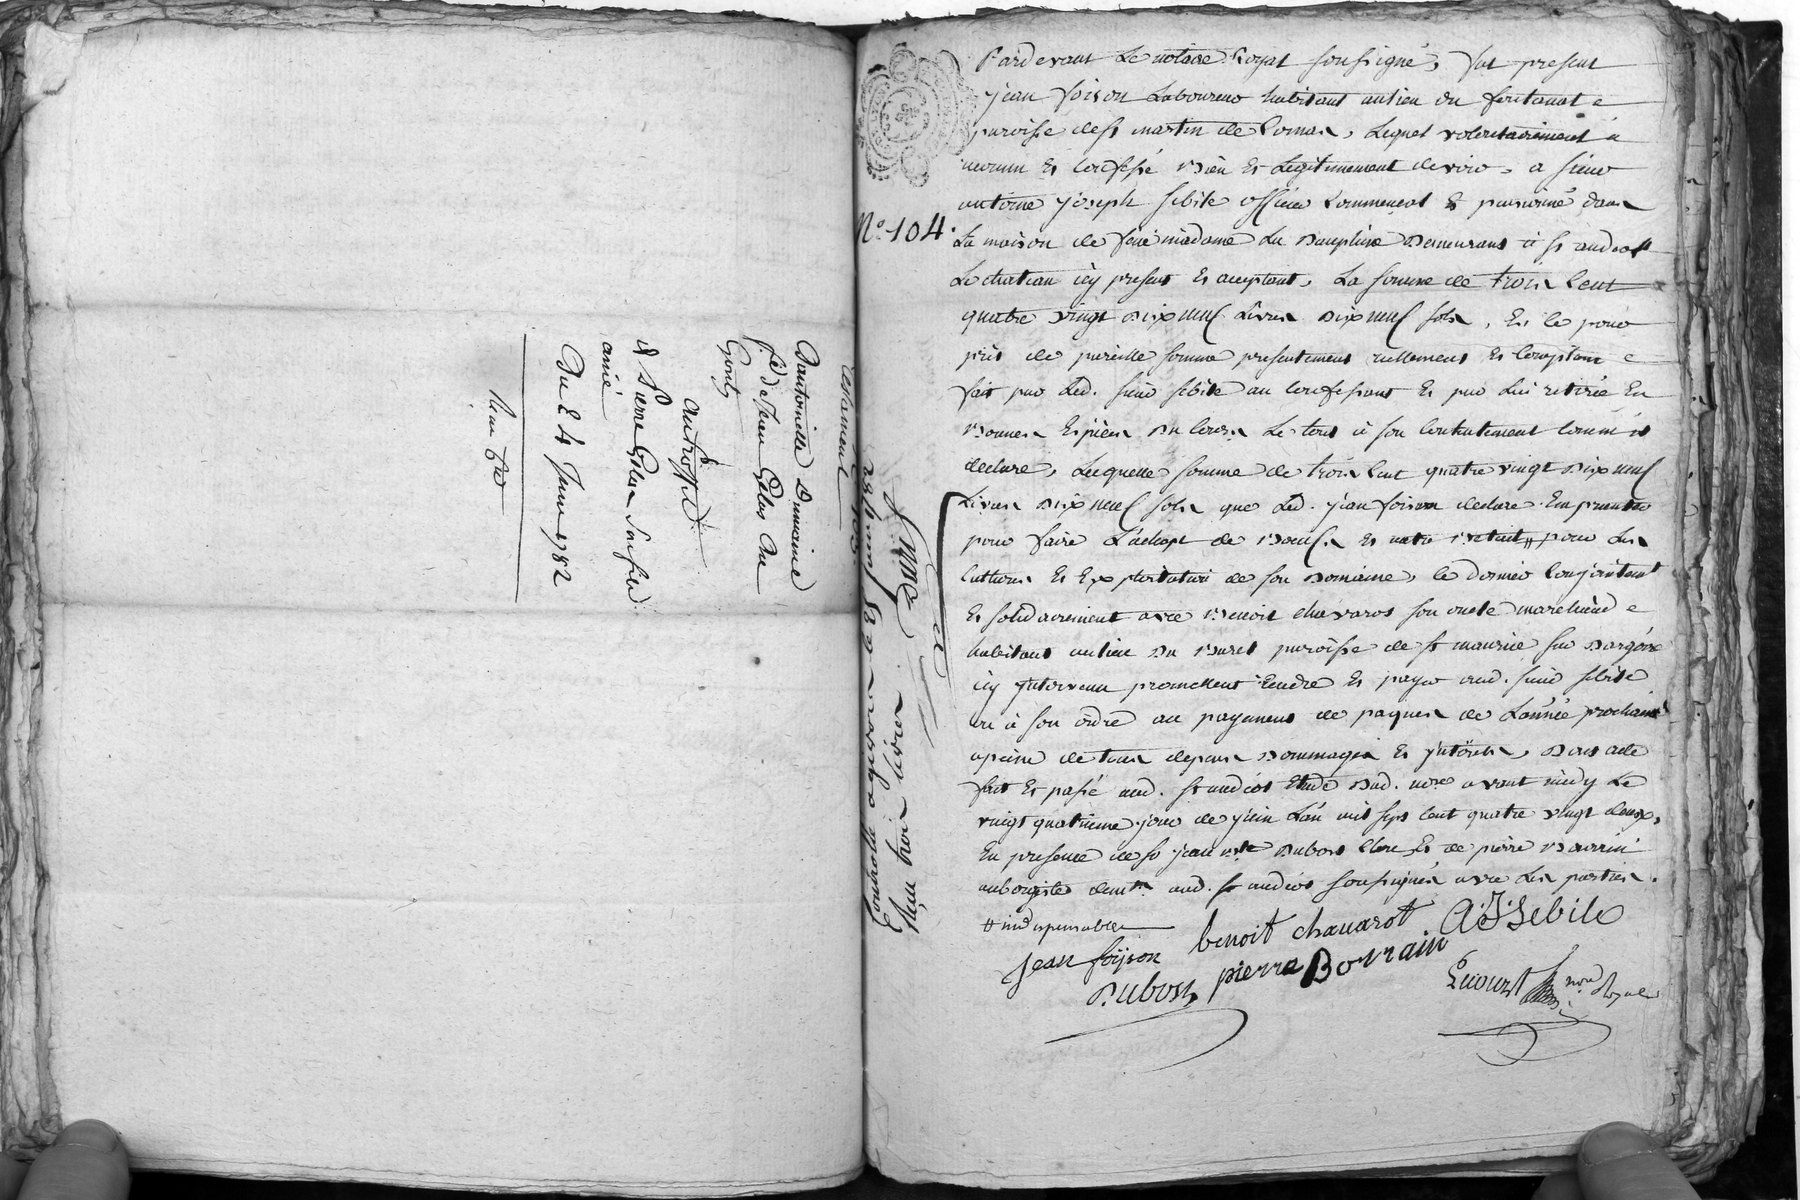 testament
Dantoinette Dumaine
fe. de Jean Gelas du
Gont
au proffit
de Pierre Gelas son fils
ainé
Du 24 Juin 1782
N° 104.
Pardevant Le notaire Royal soussigné, fut present
jean foison Laboureur habitant au lieu du fontanat
paroisse de st martin de Cornas, Lequel volontairement a
reconnu Et confessé Bien Et Legitimement devoir, a sieur
antoine joseph sebile officier Commensal Et pensionné dans
La maison de feüe madame La Dauphine Demeurant à st andeol
Le chateau icy present Et acceptant, La somme de trois Cent
quatre vingt Dix neuf Livres Dix neuf sols, Et ce pour
prêt de pareille somme presentement reellement Et Comptant
fait par Led. sieur sebile au Confessant Et par Lui retirée En
Bonnes Espèces Du Cours Le tout à son Contentement Comm'il
declare, Laquelle somme de trois Cent quatre vingt Dix neuf
Livres Dix neuf sols que Led. jean foison declare Emprunter
pour faire L'achapt de Bœufs Et pour Les
Cultures Et Exploitation de son Domaine, Ce dernier Conjointement
Et solidairement avec Benoit chavarot son oncle marchand
habitant au lieu Du Buret paroisse de st maurice sur Dargoire
icy jntervenu promettent Rendre Et payer aud. sieur sebile
ou à son ordre au payement de paques de L'année prochaine
apeine de tous depens Dommages Et jnterets, Dont acte
fait Et passé aud. st andeol Etude Dud. nore avant midy Le
vingt quatrieme jour de juin L'an mil sept Cent quatre vingt deux,
En presence de sr jean Bte Dubost Clerc Et de pierre Bourrin
aubergiste demt. aud. st andeol soussignés avec Les parties.
# indispensables
jean foijson benoit chauarot A:J:Sebile
Dubost pierre Borrain
nore Royal
Controllé a Mornant 1782
Reçu trois livres